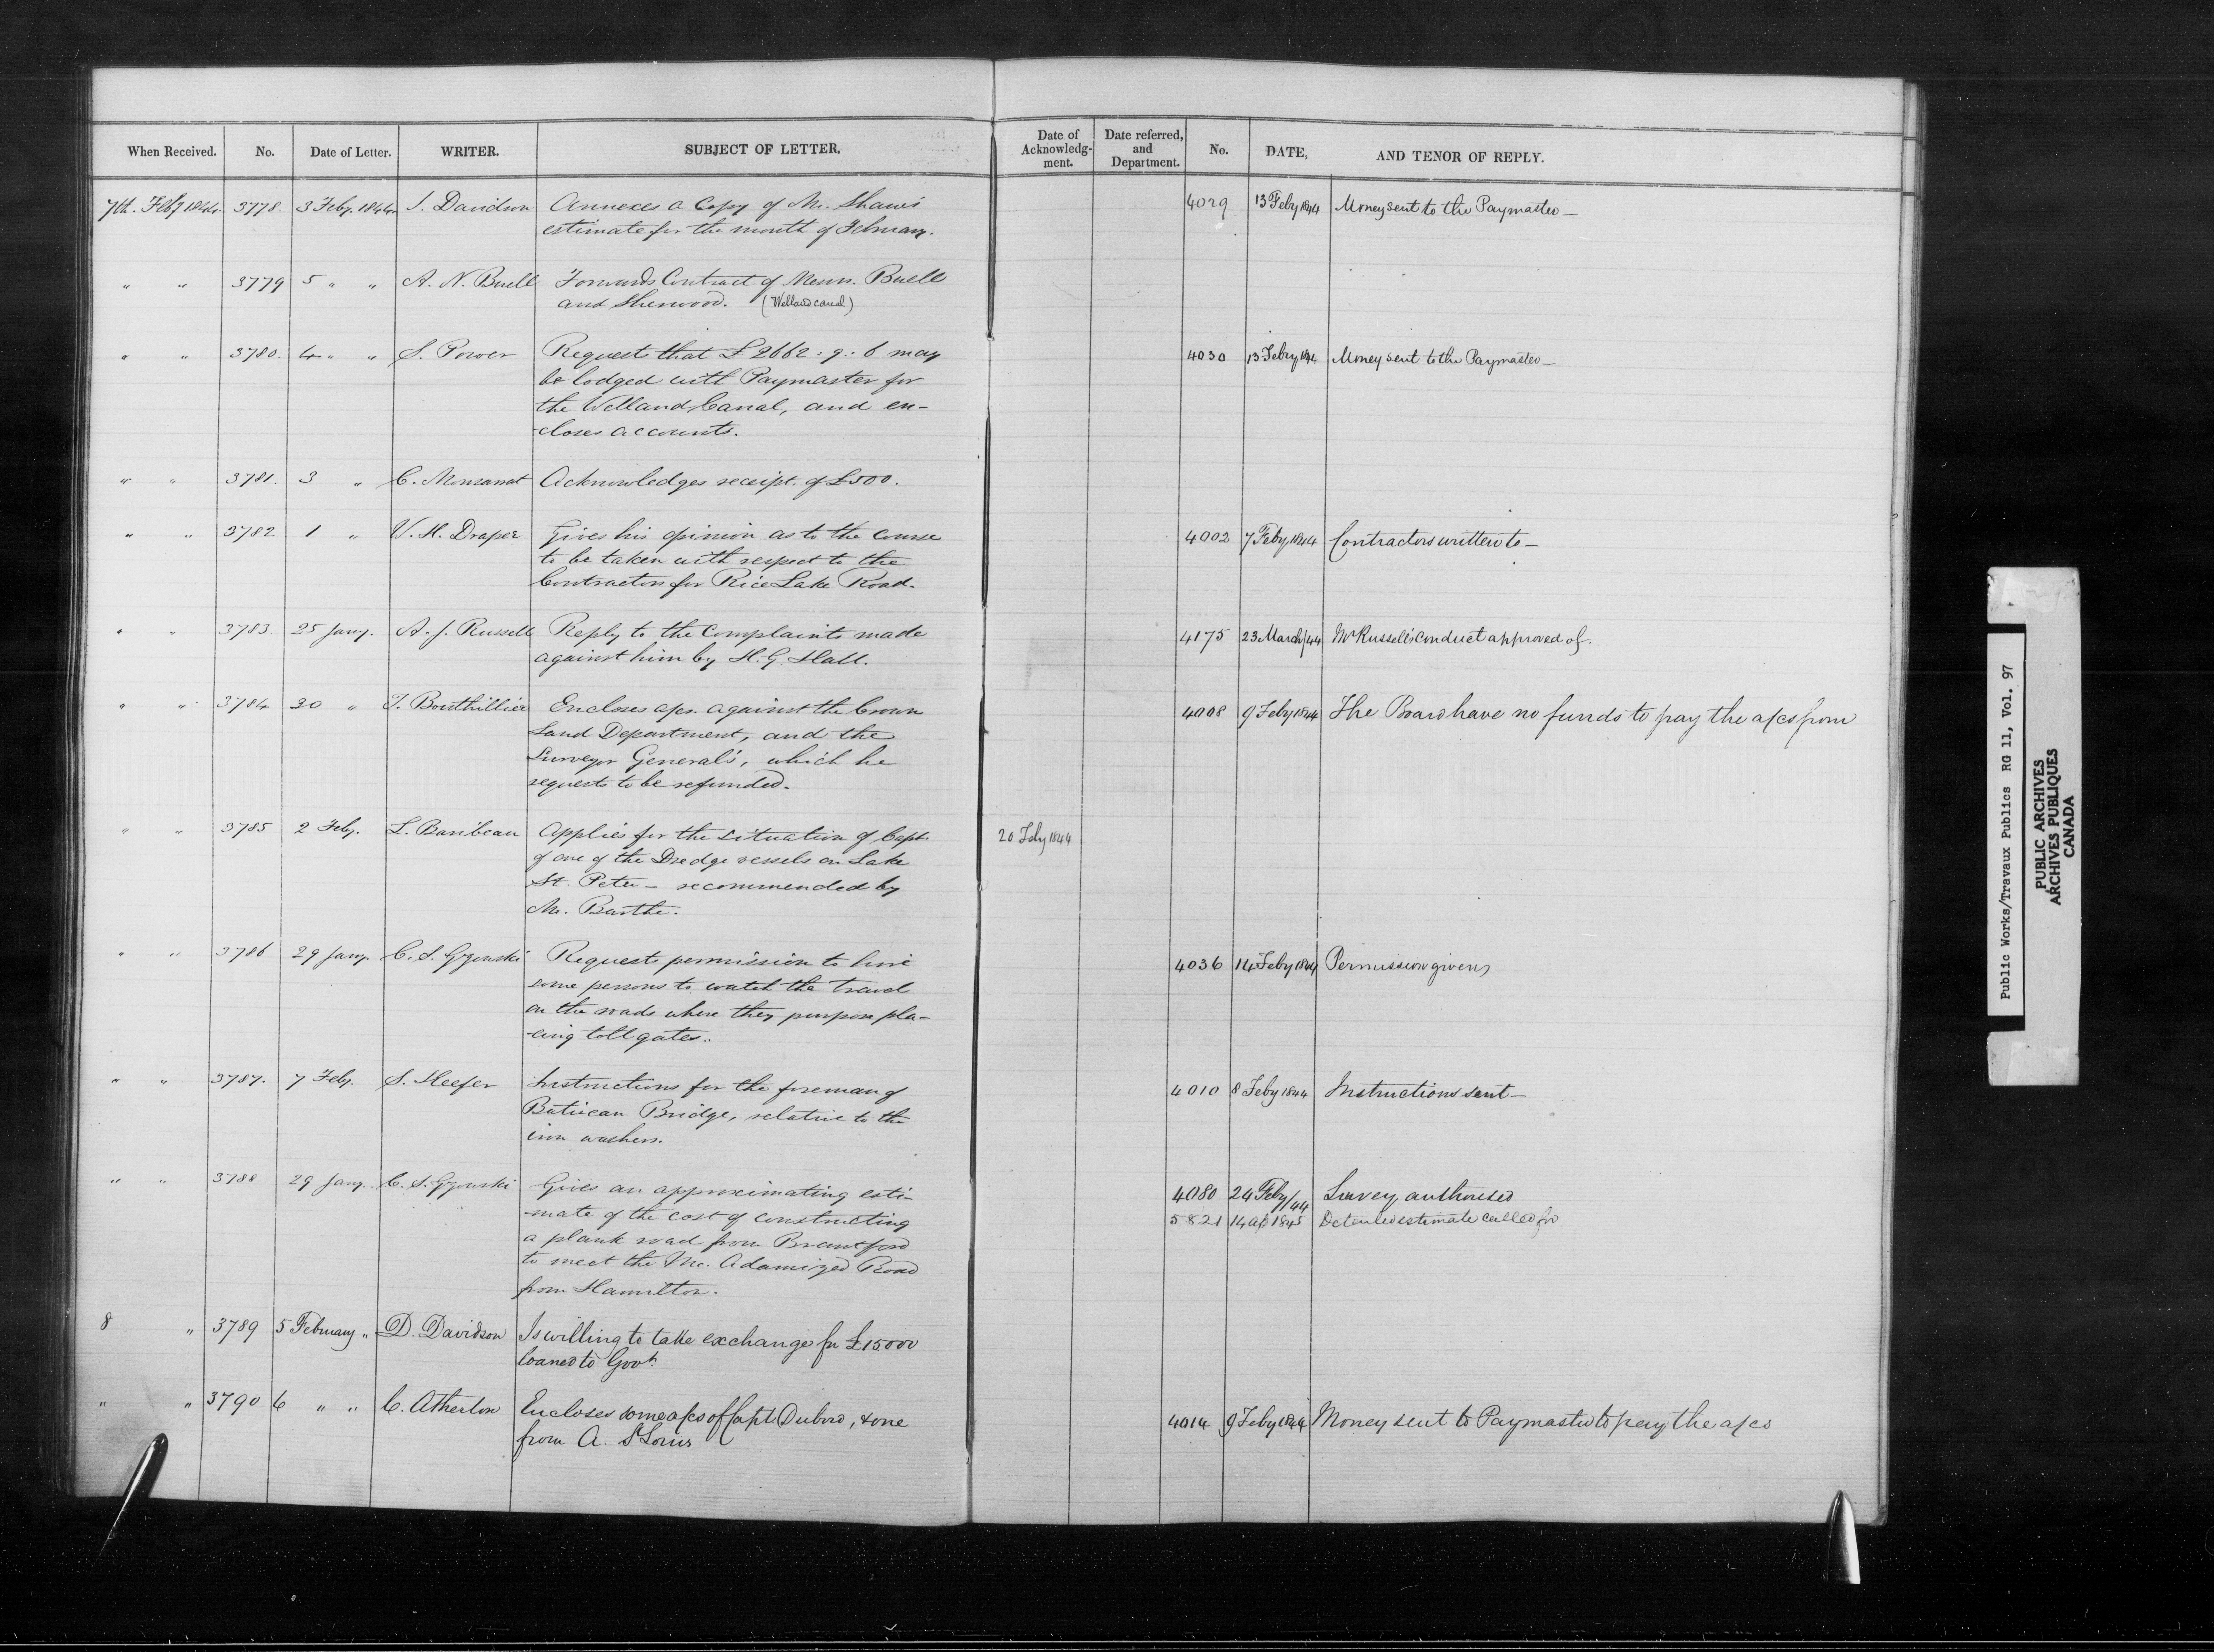 When Received. No. Date of Letter. WRITER. SUBJECT OF LETTER. Date of Acknowledg-ment. Date referred, and Department. No. DATE, AND TENOR OF REPLY.
7th. Feby 1844. 3778. 3 Feby. 1844 J. Davidson Annexes a Copy of Mr. Shaw's 4029 13 Feby 1844 Money sent to the Paymaster —
estimate for the month of February.
" " 3779 5 " " A. N. Buell Forwards Contract of Messrs. Buell
and Sherwood. (Welland canal)
" " 3780. 4 " " S. Power Requests that £2662: 9: 6 may 4030 13 Feby 1844 Money sent to the Paymaster —
be lodged with Paymaster for
the Welland Canal, and en-
-closes accounts.
" " 3781. 3 " C. Monsarrat Acknowledges receipt of £500.
" " 3782 1 " W. H. Draper Gives his opinion as to the course 4002 7 Feby 1844 Contractors written to —
to be taken with respect to the
Contractors for Rice Lake Road.
" " 3783. 25 Jany. A. J. Russell Reply to the complaints made 4175 23 March/44 Mr Russell's conduct approved of.
against him by H. G. Hall.
" " 3784 30 " T. Bouthillier Encloses a/cs. against the Crown 4008 9 Feby 1844 The Board have no funds to pay the a/cs from
Land Department, and the
Surveyor General's, which he
requests to be refunded.
" " 3785 2 Feby. L. Baribeau Applies for the situation of Capt. 20 Feby 1844
of one of the Dredge vessels on Lake
St. Peter — recommended by
Mr. Barthe.
" " 3786 29 Jany. C. S. Gzowski Requests permission to hire 4036 14 Feby 1844 Permission given
some persons to watch the travel
on the roads where they purpose pla-
-cing toll gates.
" " 3787. 7 Feby. S. Keefer Instructions for the foreman of 4010 8 Feby 1844 Instructions sent —
Batiscan Bridge, relative to the
iron washers.
" " 3788 29 Jany. C. S. Gzowski Gives an approximating esti- 4080 24 Feby/44 Survey authorised
-mate of the cost of constructing 5821 14 ap 1845 Detailed estimate called for
a plank road from Brantford
to meet the Mc. Adamized Road
from Hamilton.
8 " 3789 5 February " D. Davidson Is willing to take exchange for £15000
loaned to Govt.
" " 3790 6 " " C. Atherton Encloses some a/cs of Capt. Dubord, & one 4014 9 Feby 1844 Money sent to Paymaster to pay the a/cs
from A. St Louis
Public Works/Travaux Publics RG 11, Vol. 97
PUBLIC ARCHIVES
ARCHIVES PUBLIQUES
CANADA